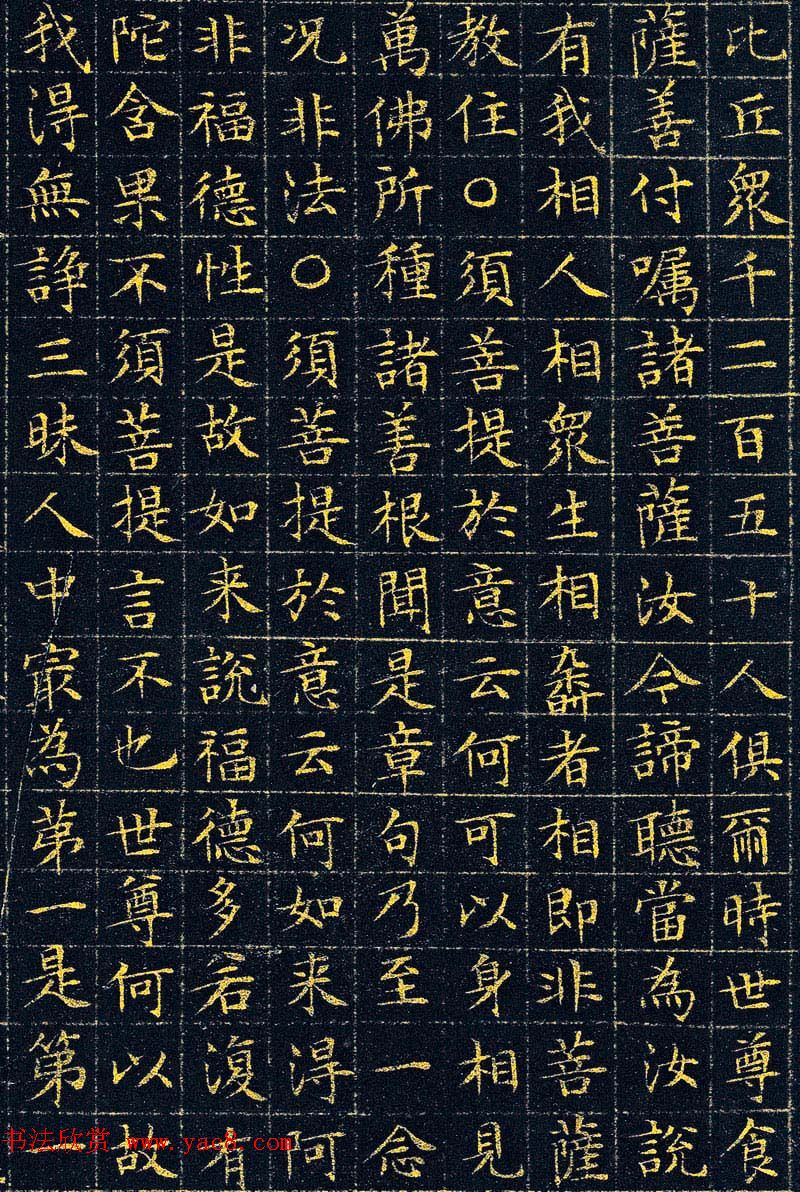 比丘眾千二百五十人俱爾時世尊食
薩善付嘱諸善薩汝今諦聽當為汝說
有我相人相眾生相壽者相即非菩薩
教住○須善提於意云何可以身相見
萬佛所種諸善根聞是章句乃至一念
况非法○須菩提於意云何如来得阿
非福德性是故如来說福德多若復有
陀含果不須菩提言不也世尊何以故
我得無諍三昧人中冣為苐一是第一
书法欣赏 www.yac8.com